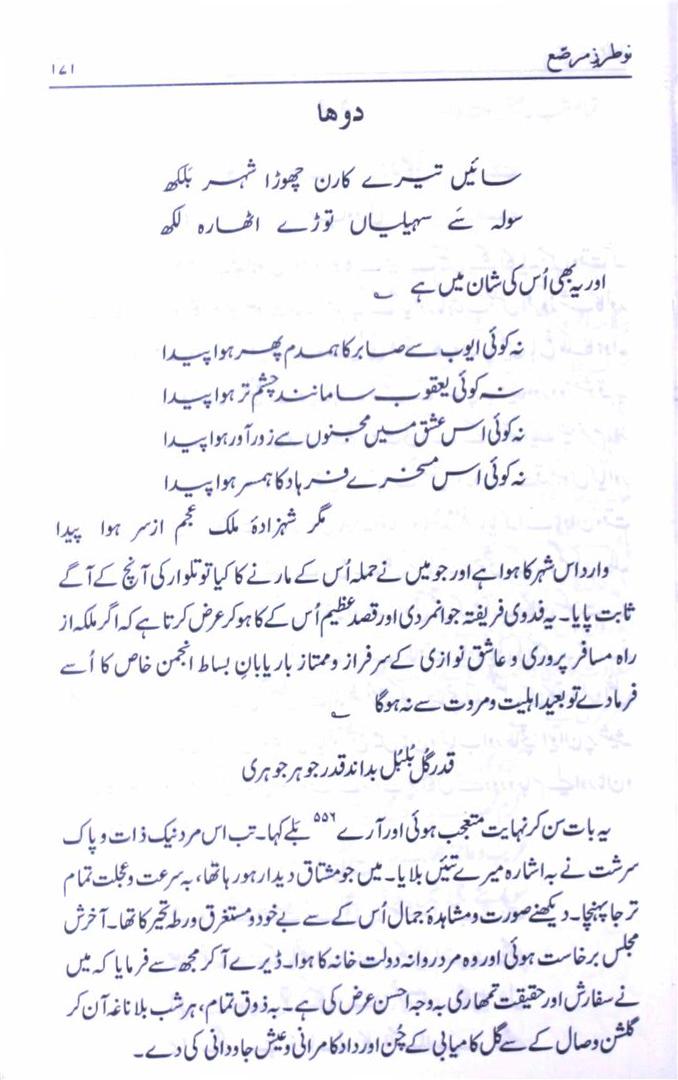 نو طرزِ مرصّع
۱۷۱
دوھا
سائیں تیرے کارن چھوڑا شہر بَلکھ
سولہ سَے سہیلیاں توڑے اٹھارہ لکھ
اور یہ بھی اُس کی شان میں ہے ؎
نہ کوئی ایوب سے صابر کا ہمدم پھر ہوا پیدا
نہ کوئی یعقوب سا مانند چشمِ تر ہوا پیدا
نہ کوئی اس عشق میں مجنوں سے زور آور ہوا پیدا
نہ کوئی اس مسخرے فرہاد کا ہمسر ہوا پیدا
مگر شہزادۂ ملک عجم از سر ہوا پیدا
وارد اس شہر کا ہوا ہے اور جو میں نے حملہ اُس کے مارنے کا کیا تو تلوار کی آنچ کے آگے
ثابت پایا۔ یہ فدوی فریفتہ جوانمردی اور قصد عظیم اُس کے کا ہو کر عرض کرتا ہے کہ اگر ملکہ از
راہ مسافر پروری و عاشق نوازی کے سرفراز و ممتاز باریابانِ بساط انجمن خاص کا اُسے
فرمادے تو بعید اہلیت و مروت سے نہ ہوگا ؎
قدر گُل بُلبُل بداند قدر جوہر جوہری
یہ بات سن کر نہایت متعجب ہوئی اور آرے ۵۵۶ بَلے کہا۔ تب اس مرد نیک ذات و پاک
سرشت نے بہ اشارہ میرے تئیں بلایا۔ میں جو مشتاق دیدار ہو رہا تھا، بہ سرعت و عجلت تمام
تر جا پہنچا۔ دیکھنے صورت و مشاہدۂ جمال اُس کے سے بے خود و مستغرق ورطۂ تحیر کا تھا۔ آخرش
مجلس برخاست ہوئی اور وہ مرد روانہ دولت خانہ کا ہوا۔ ڈیرے آ کر مجھ سے فرمایا کہ میں
نے سفارش اور حقیقت تمھاری بہ وجہ احسن عرض کی ہے۔ بہ ذوق تمام، ہر شب بلا ناغہ آن کر
گلشن وصال کے سے گل کامیابی کے چُن اور داد کامرانی و عیش جاودانی کی دے۔